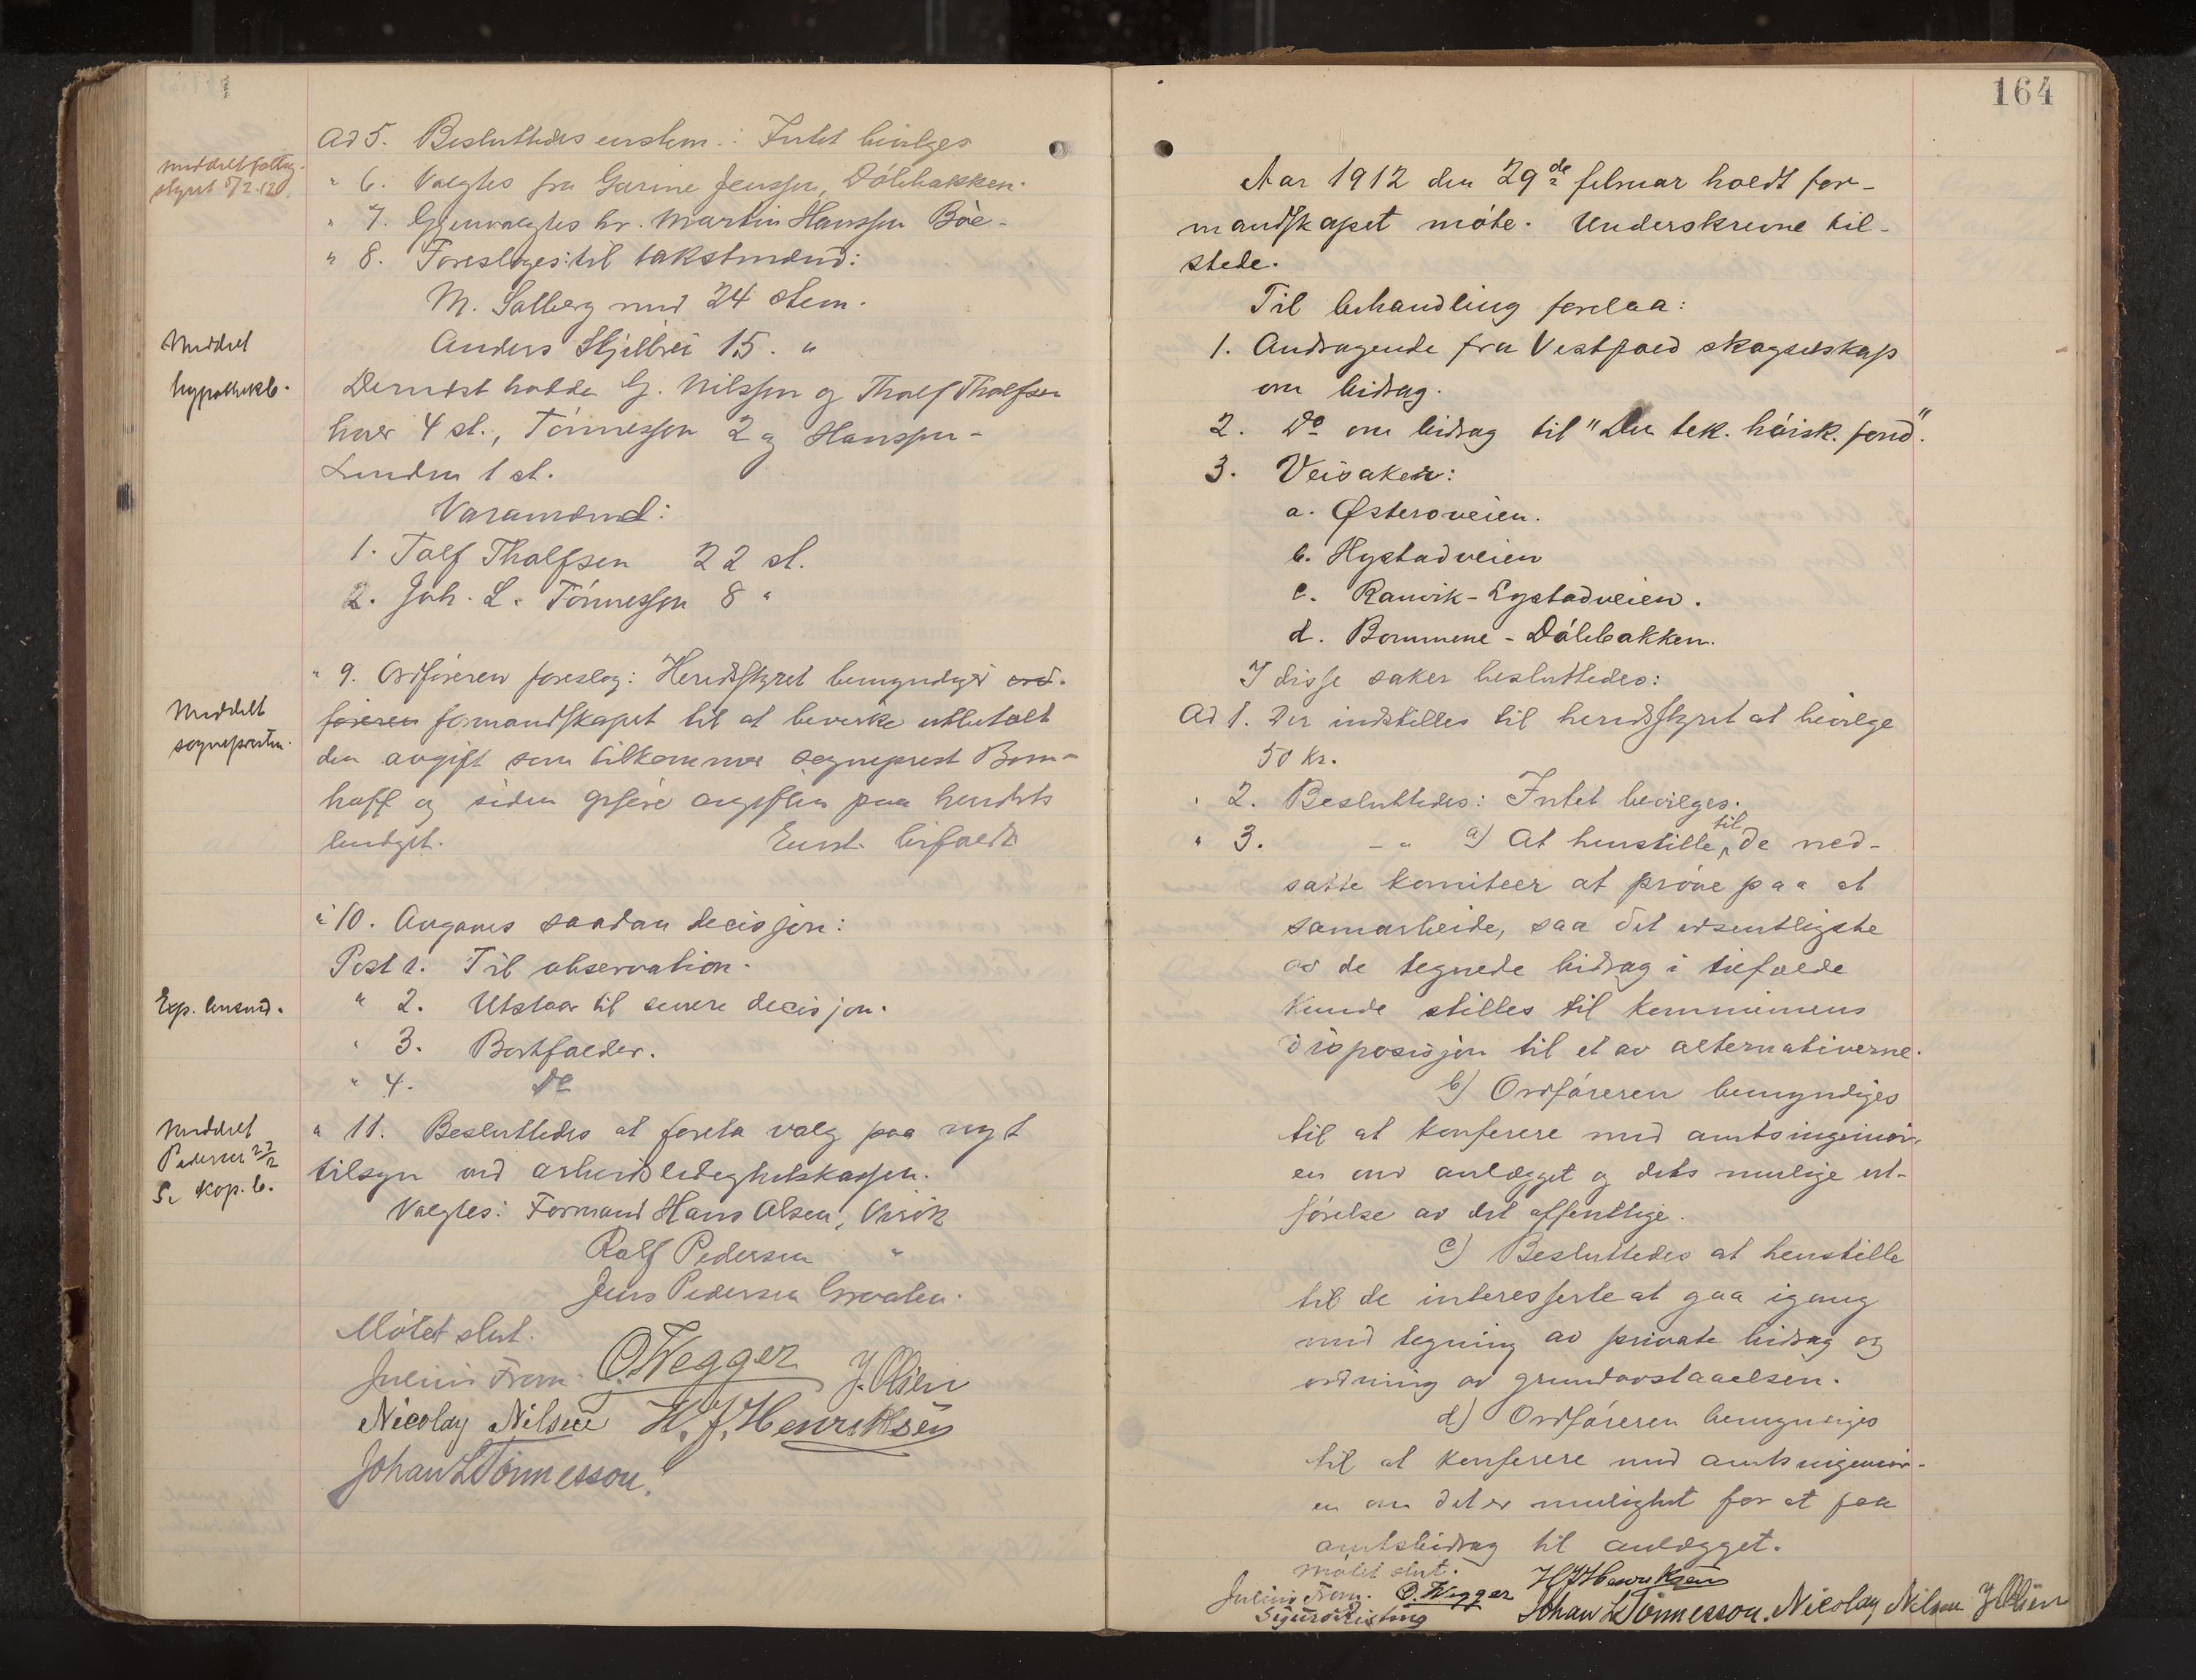 Ad 5. Besluttedes enstem.: Intet bevilges
Meddelt fattig-
styret 5/2.12.
" 6. Valgtes fru Garine Jenssen, Dølebakken.
" 7. Gjenvalgtes hr. Martin Hanssen Bøe-
" 8. Foresloges: til takstmænd:
M. Solberg med 24 stem.
Meddelt
hypothekb.
Anders Skjelbrei 15. "
Dernæst hadde G. Nilssen og Tholf Tholfsen
hver 4 st., Tønnessen 2 og Hanssen-
Lunden 1 st.
Varamænd:
1. Tolf Tholfsen 22 st.
2. Joh. L. Tønnessen 8 "
" 9. Ordføreren foreslog: Heredsstyret bemyndiger ord-
Meddelt
sognepresten.
føreren formandsskapet til at bevirke utbetalt
den avgift som tilkommer sogneprest Bom-
hoff og siden opføre avgiften paa heredets
budget. Enst. bifaldt
" 10. Avgaves saadan decisjon:
Post 1. Til observation.
Exp. lensmd.
" 2. Utstaar til senere decisjon.
" 3. Bortfalder.
" 4. Do
Meddelt
Pedersen 27/2
Se Kop. b.
" 11. Besluttedes at foreta valg paa nyt
tilsyn ved arbeidsledighetskassen.
Valgtes: Formand Hans Olsen, Virik
Rolf Pedersen "
Jens Pedersen
Møtet slut.
Julius Fram. O. Wegger J. Olsen
Nicolay Nilsen H. J. Henriksen
Johan L Tønnesson.
164
Aar 1912 den 29de februar holdt for-
mandsskapet møte. Underskrevne til-
stede.
Til behandling forelaa:
1. Andragende fra Vestfold skogselskap
om bidrag.
2. Do om bidrag til "Den tek. høisk. fond".
3. Veisaker:
a. Østerøveien.
b. Hystadveien
c. Ranvik-Lystadveien.
d. Bommene - Dølebakken.
I disse saker besluttedes:
Ad 1. Der indstilles til heredsstyret at bevilge
50 kr.
" 2. Besluttedes: Intet bevilges.
" 3. - " a) At henstille til de ned-
satte komiteer at prøve paa at
samarbeide, saa det væsentligste
av de tegnede bidrag i tilfælde
kunde stilles til kommunens
disposisjon til et av alternativerne.
b) Ordføreren bemyndiges
til at konferere med amtsingeniør-
en om anlægget og dets mulige ut-
førelse av det offentlige.
c) Besluttedes at henstille
til de interesserte at gaa igang
med tegning av private bidrag og
ordning av grundavstaaelsen.
d) Ordføreren bemyndiges
til at konferere med amtsingeniør-
en om det er mulighet for at faa
amtsbidrag til anlægget.
Møtet slut.
Julius Fram. O. Wegger H J Henriksen
Sigurd Risting Johan L Tønnesson. Nicolay Nilsen J Olsen